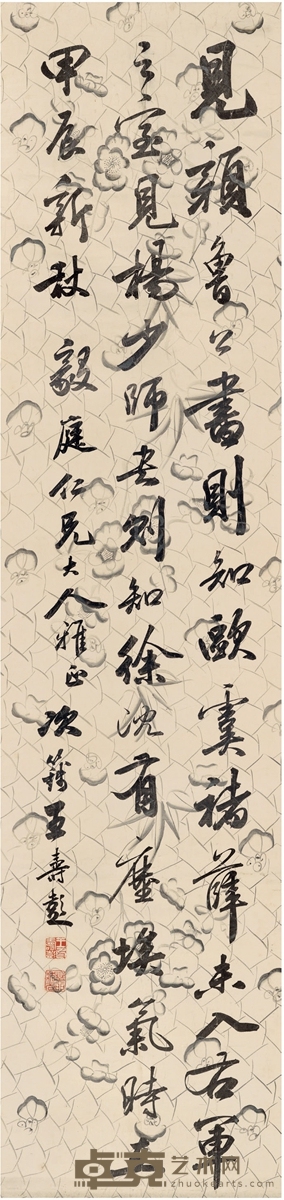 見顏魯公書則知歐虞褚薛未入右軍
之室見楊少師書則知徐沈有塵埃氣時在
甲辰新秋 毅庭仁兄大人雅正 次籛王壽彭
卓克艺术网
www.zhuokearts.com